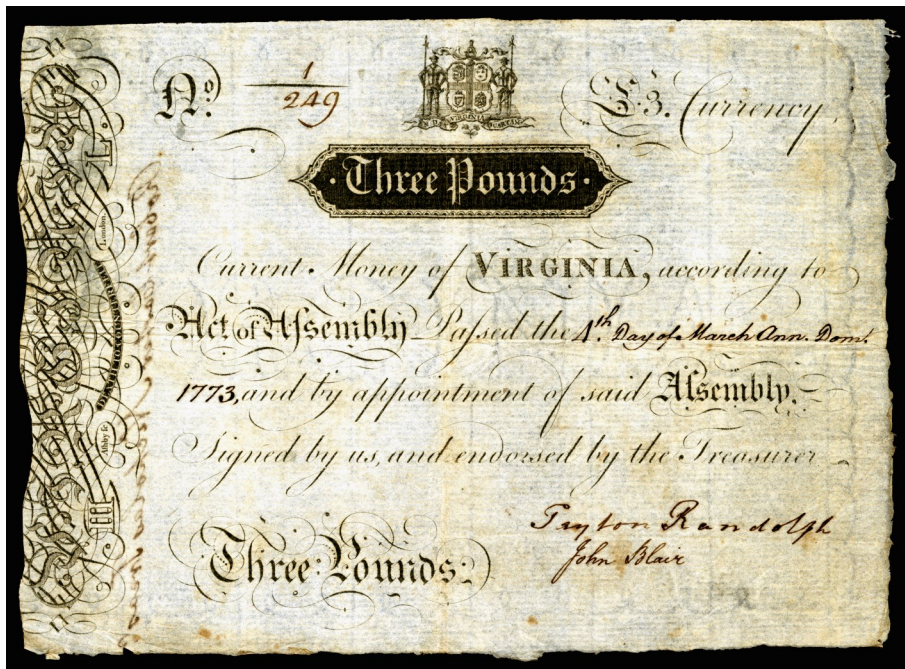 No. 1/249
£3. Currency.
·Three Pounds·
Current Money of VIRGINIA, according to
Act of Assembly Passed the 4th. Day of March Ann. Dom.
1773, and by appointment of said Assembly.
Signed by us, and endorsed by the Treasurer
Peyton Randolph
John Blair
Three Pounds:
London.
Ashby fc.